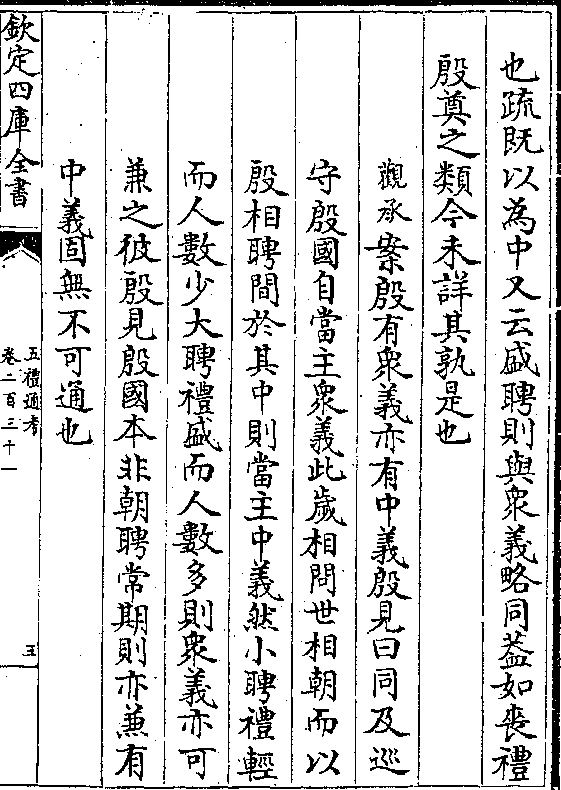 也疏既以為中又云盛聘則與衆義略同葢如喪禮
殷奠之類今未詳其孰是也
觀承案殷有衆義亦有中義殷見曰同及巡
守殷國自當主衆義此歲相問世相朝而以
殷相聘間於其中則當主中義然小聘禮輕
而人數少大聘禮盛而人數多則衆義亦可
兼之彼殷見殷國本非朝聘常期則亦兼有
中義固無不可通也
欽定四庫全書
五禮通考
卷二百三十一
五